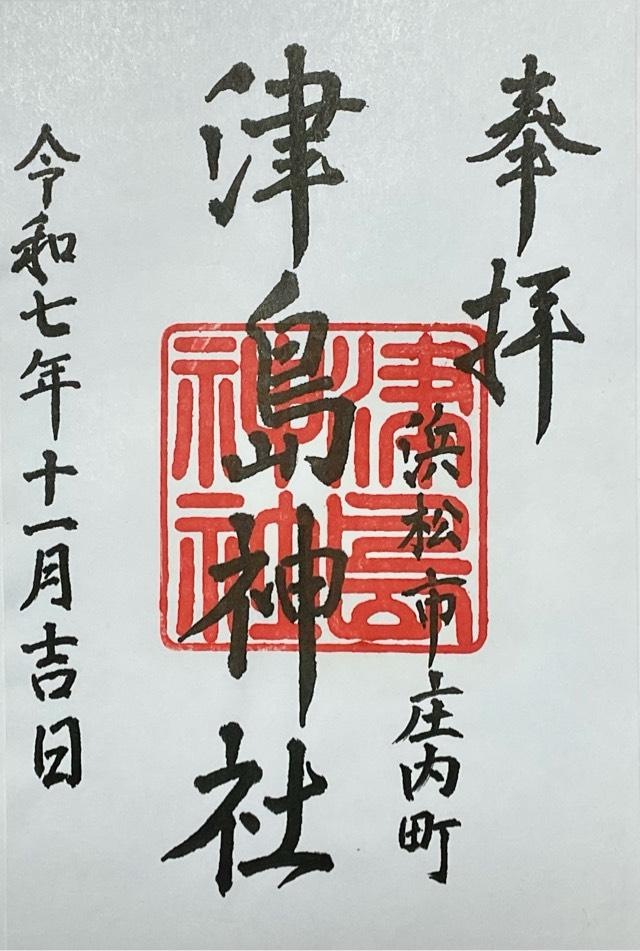 奉拝
浜松市庄内町
津島神社
津島神社
令和七年十一月吉日